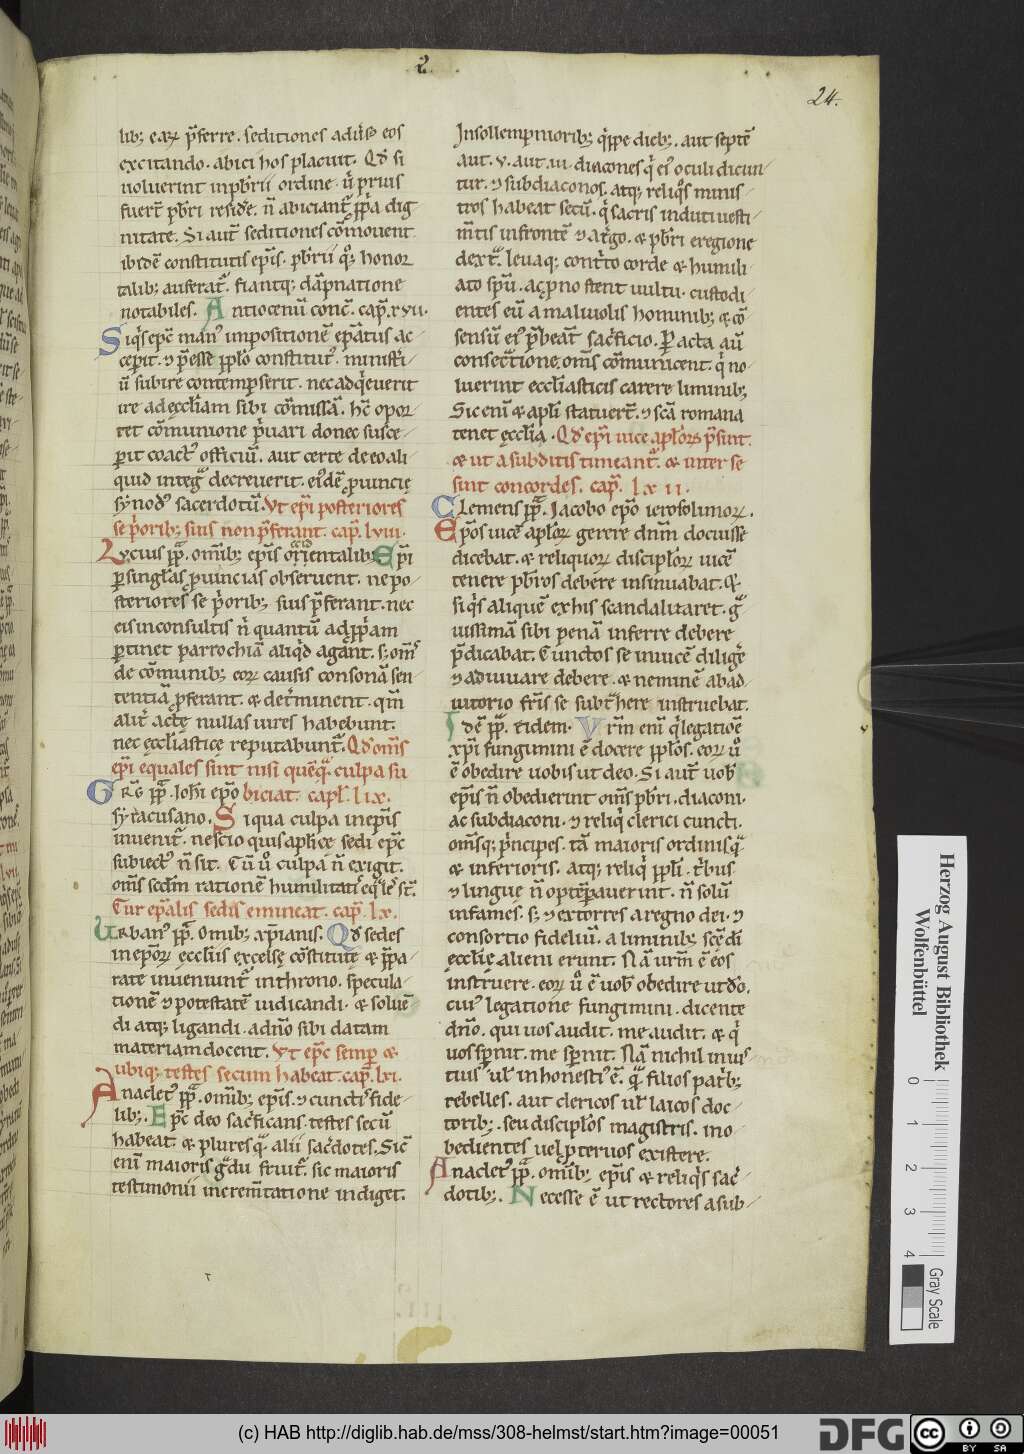 2
24.
lib; eaꝝ p̄ferre. seditiones adūsꝰ eos
excitando. abici hos placuit. Qd̄ si
uoluerint inpb̄rii ordine. ū prius
fuert̄ pb̄ri reside. n̄ abiciant᷑ ꝓp̄a dig
nitate. Si aut̄ seditiones cōmouent
ibidē constitutis ep̄is. pb̄rii qꝫ honor
talib; auferat᷑. fiantqꝫ dāpnatione
notabiles. Antiocenū conc̄. cap̄. xvii.
Siq̄s ep̄c man᷒ impositionē ep̄atus ac-
cep̄it. ⁊ p̄esse ꝓp̄lo constitut᷑. ministr̄i
ū subire contempserit. nec adqͥeuerit
ire ad eccl̄iam sibi cōmissā. hc̄ opor-
tet cōmunione p̄uari donec susce-
ꝑit coact᷒ officiū. aut certe de eo ali-
quid integͣ decreuerit. ei᷒dē ꝓuincię
synod᷒ sacerdotū. Vt ep̄i posteriores
se p̄orib; suis non p̄ferant. cap̄. lviii.
Lucius p̄p̄. omīb; ep̄is orientalib; Ep̄i
ꝑ singl̄as ꝓuincias obseruent. ne po-
steriores se p̄orib; suis p̄ferant. nec
eis inconsultis n̄ quantū ad ꝓp̄am
ꝑtinet parrochiā aliq̄d agant. s; om̄s
de cōmunib; eoꝝ causis consonā sen-
tentiā ꝓferant. ⁊ det̄minent. qm̄
alit̄ actę nullas uires habebunt.
nec eccl̄iastice reputabunt᷑. Qd̄ om̄s
ep̄i equales sint nisi quēqͣ culpa su
Grḡ p̄p̄. Ioh̄i ep̄o biciat. capl̄. lix.
syracusano. Si qua culpa in ep̄is
inuenit᷑. nescio quis aplīce sedi ep̄c
subiect᷒ n̄ sit. Cū ū culpa n̄ exigit.
om̄s scd̄m rationē humilitatis eq̄les st̄.
Cur ep̄alis sedis emineat. cap̄. lx.
Urban᷒ p̄p̄. Omib; xp̄ianis. Qd̄ sedes
in ep̄oꝝ eccl̄iis excelsę cōstitutę ⁊ p̄pa-
rate inueniunt᷑ in throno. specula-
tionē ⁊ potestatē iudicandi. ⁊ soluē-
di atqꝫ ligandi. a dn̄o sibi datam
materiam docent. Vt ep̄c semꝑ ⁊
ubiqꝫ testes secum habeat. cap̄. lxi.
Anaclet᷒ p̄p̄. omīb; ep̄is. ⁊ cunctis fide-
lib;. Ep̄c deo sac̄ficans. testes secū
habeat. ⁊ plures qͣ alii sac̄dotes. Sic̄
enī maioris gͣdu fruit᷑. sic maioris
testimonii increm̄tatione indiget.
In sollempnioribꝫ q̄ppe dieb;. aut septē
aut. v. aut. iii. diacones qͥ ei᷒ oculi dicun-
tur. ⁊ subdiaconos. atqꝫ reliqͦs minis-
tros habeat secū. qͥ sacris induti uesti-
m̄tis in frontē ⁊ at̄go. ⁊ pb̄ri e regione
dext᷑. leuaqꝫ contͥto corde ⁊ humili-
ato sp̄u. ac ꝓno stent uultu. custodi-
entes eū a maliuolis hominib; ⁊ cō
sensū ei᷒ p̄beāt sac̄ficio. Pacta aū
consec̄tione. om̄s cōmunicent. qͥ no-
luerint eccl̄iasticis carere liminib;
Sic enī ⁊ apl̄i statuert̄. ⁊ scā romana
tenet eccl̄ia. Qd̄ ep̄i uice apl̄oꝝ p̄sint.
⁊ ut a subditis timeant᷑. ⁊ inter se
sint concordes. cap̄. lxii.
Clemens p̄p̄. Jacobo ep̄o ierosolimoꝝ.
Ep̄os uicē apl̄oꝝ gerere dn̄m docuisse
dicebat. ⁊ reliquoꝝ disciploꝝ uicē
tenere pb̄ros debere insinuabat. ⁊
siq̄s aliquē ex his scandalizaret. gͣ
uissimā sibi penā inferre debere
p̄dicabat. Cunctos se inuicē diligē
⁊ adiuuare debere. ⁊ neminē ab ad
iutorio fr̄is se subt̄here instruebat.
Idē p̄p̄. eidem. Vrm̄ enī q̄ legatiōe
xp̄i fungimini ē docere pp̄los. eoꝝ ū
ē obedire uobis ut deo. Si aut̄ uob̄
ep̄is n̄ obedierint om̄s pb̄ri. diaconi.
ac subdiaconi. ⁊ reliqͥ clerici cuncti.
om̄sqꝫ p̄ncipes. tā maioris ordinis qͣ
⁊ inferioris. atqꝫ reliqͥ pp̄li. t̄bus
⁊ lingue n̄ optēꝑauerint. n̄ solū
infames. s; ⁊ extorres a regno dei. ⁊
consortio fideliū. a liminib; scē di
eccl̄ię alieni erunt. Nā urm̄ ē eos
instruere. eoꝝ ū ē uob̄ obedire ut dn̄o.
cui᷒ legatione fungimini. dicente
dn̄o. qui uos audit. me audit. ⁊ qͥ
uos sꝑnit. me sꝑnit. Nā nichil inius
tius ul̄ inhonesti᷒ ē. qͣ filios patͥb;
rebelles. aut clericos ul̄ laicos doc-
torib;. seu disciplos magistris. ino-
bedientes uel ꝓteruos existere.
Anaclet᷒ p̄p̄. omīb; ep̄is ⁊ reliq̄s sac̄
dotib;. Necesse ē ut rectores a sub-
Herzog August Bibliothek
Wolfenbüttel
0 1 2 3 4
Gray Scale
(c) HAB http://diglib.hab.de/mss/308-helmst/start.htm?image=00051
DFG
cc BY SA